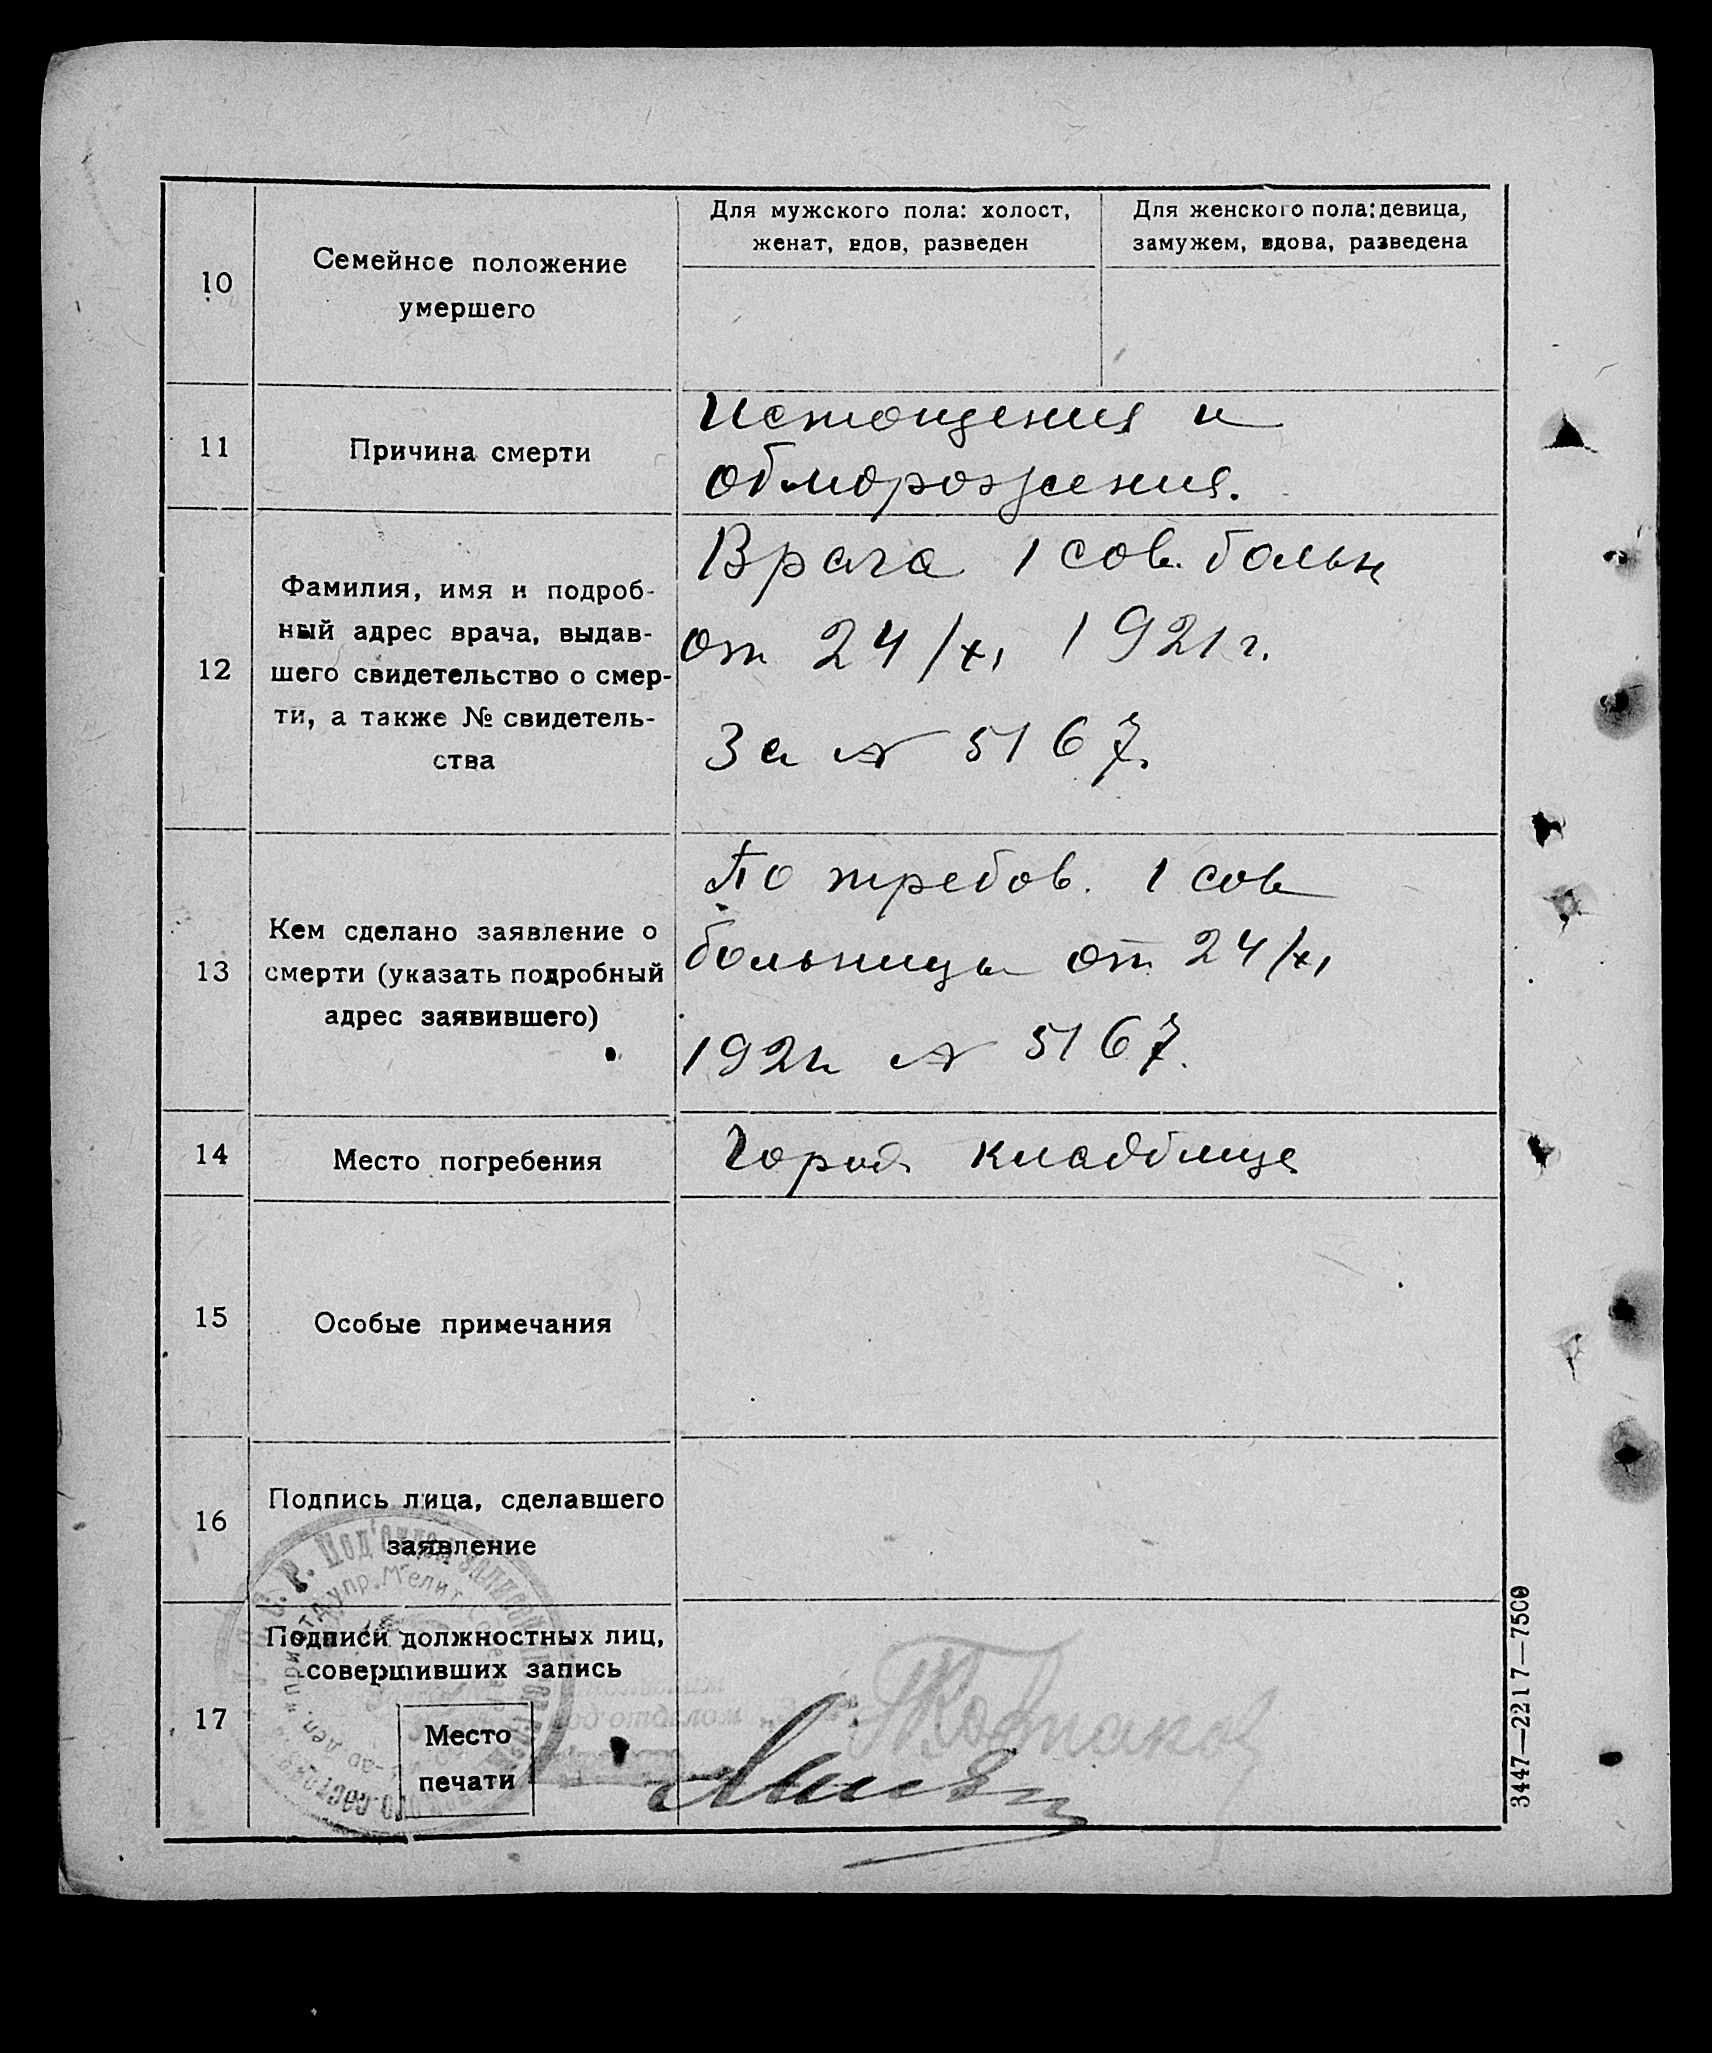 10
Семейное положение
умершего
Для мужского пола: холост,
женат, вдов, разведен
Для женского пола: девица,
замужем, вдова, разведена
11
Причина смерти
Истощения и
обморожения.
12
Фамилия, имя и подроб-
ный адрес врача, выдав-
шего свидетельство о смер-
ти, а также № свидетель-
ства
Врача 1 сов. больн
от 24/XI 1921 г.
За № 5167.
13
Кем сделано заявление о
смерти (указать подробный
адрес заявившего)
По требов. 1 сов
больницы от 24/XI
1921 № 5167.
14
Место погребения
Город кладбище
15
Особые примечания
16
Подпись лица, сделавшего
заявление
17
Подписи должностных лиц,
совершивших запись
Место
печати
3447—2217—7500